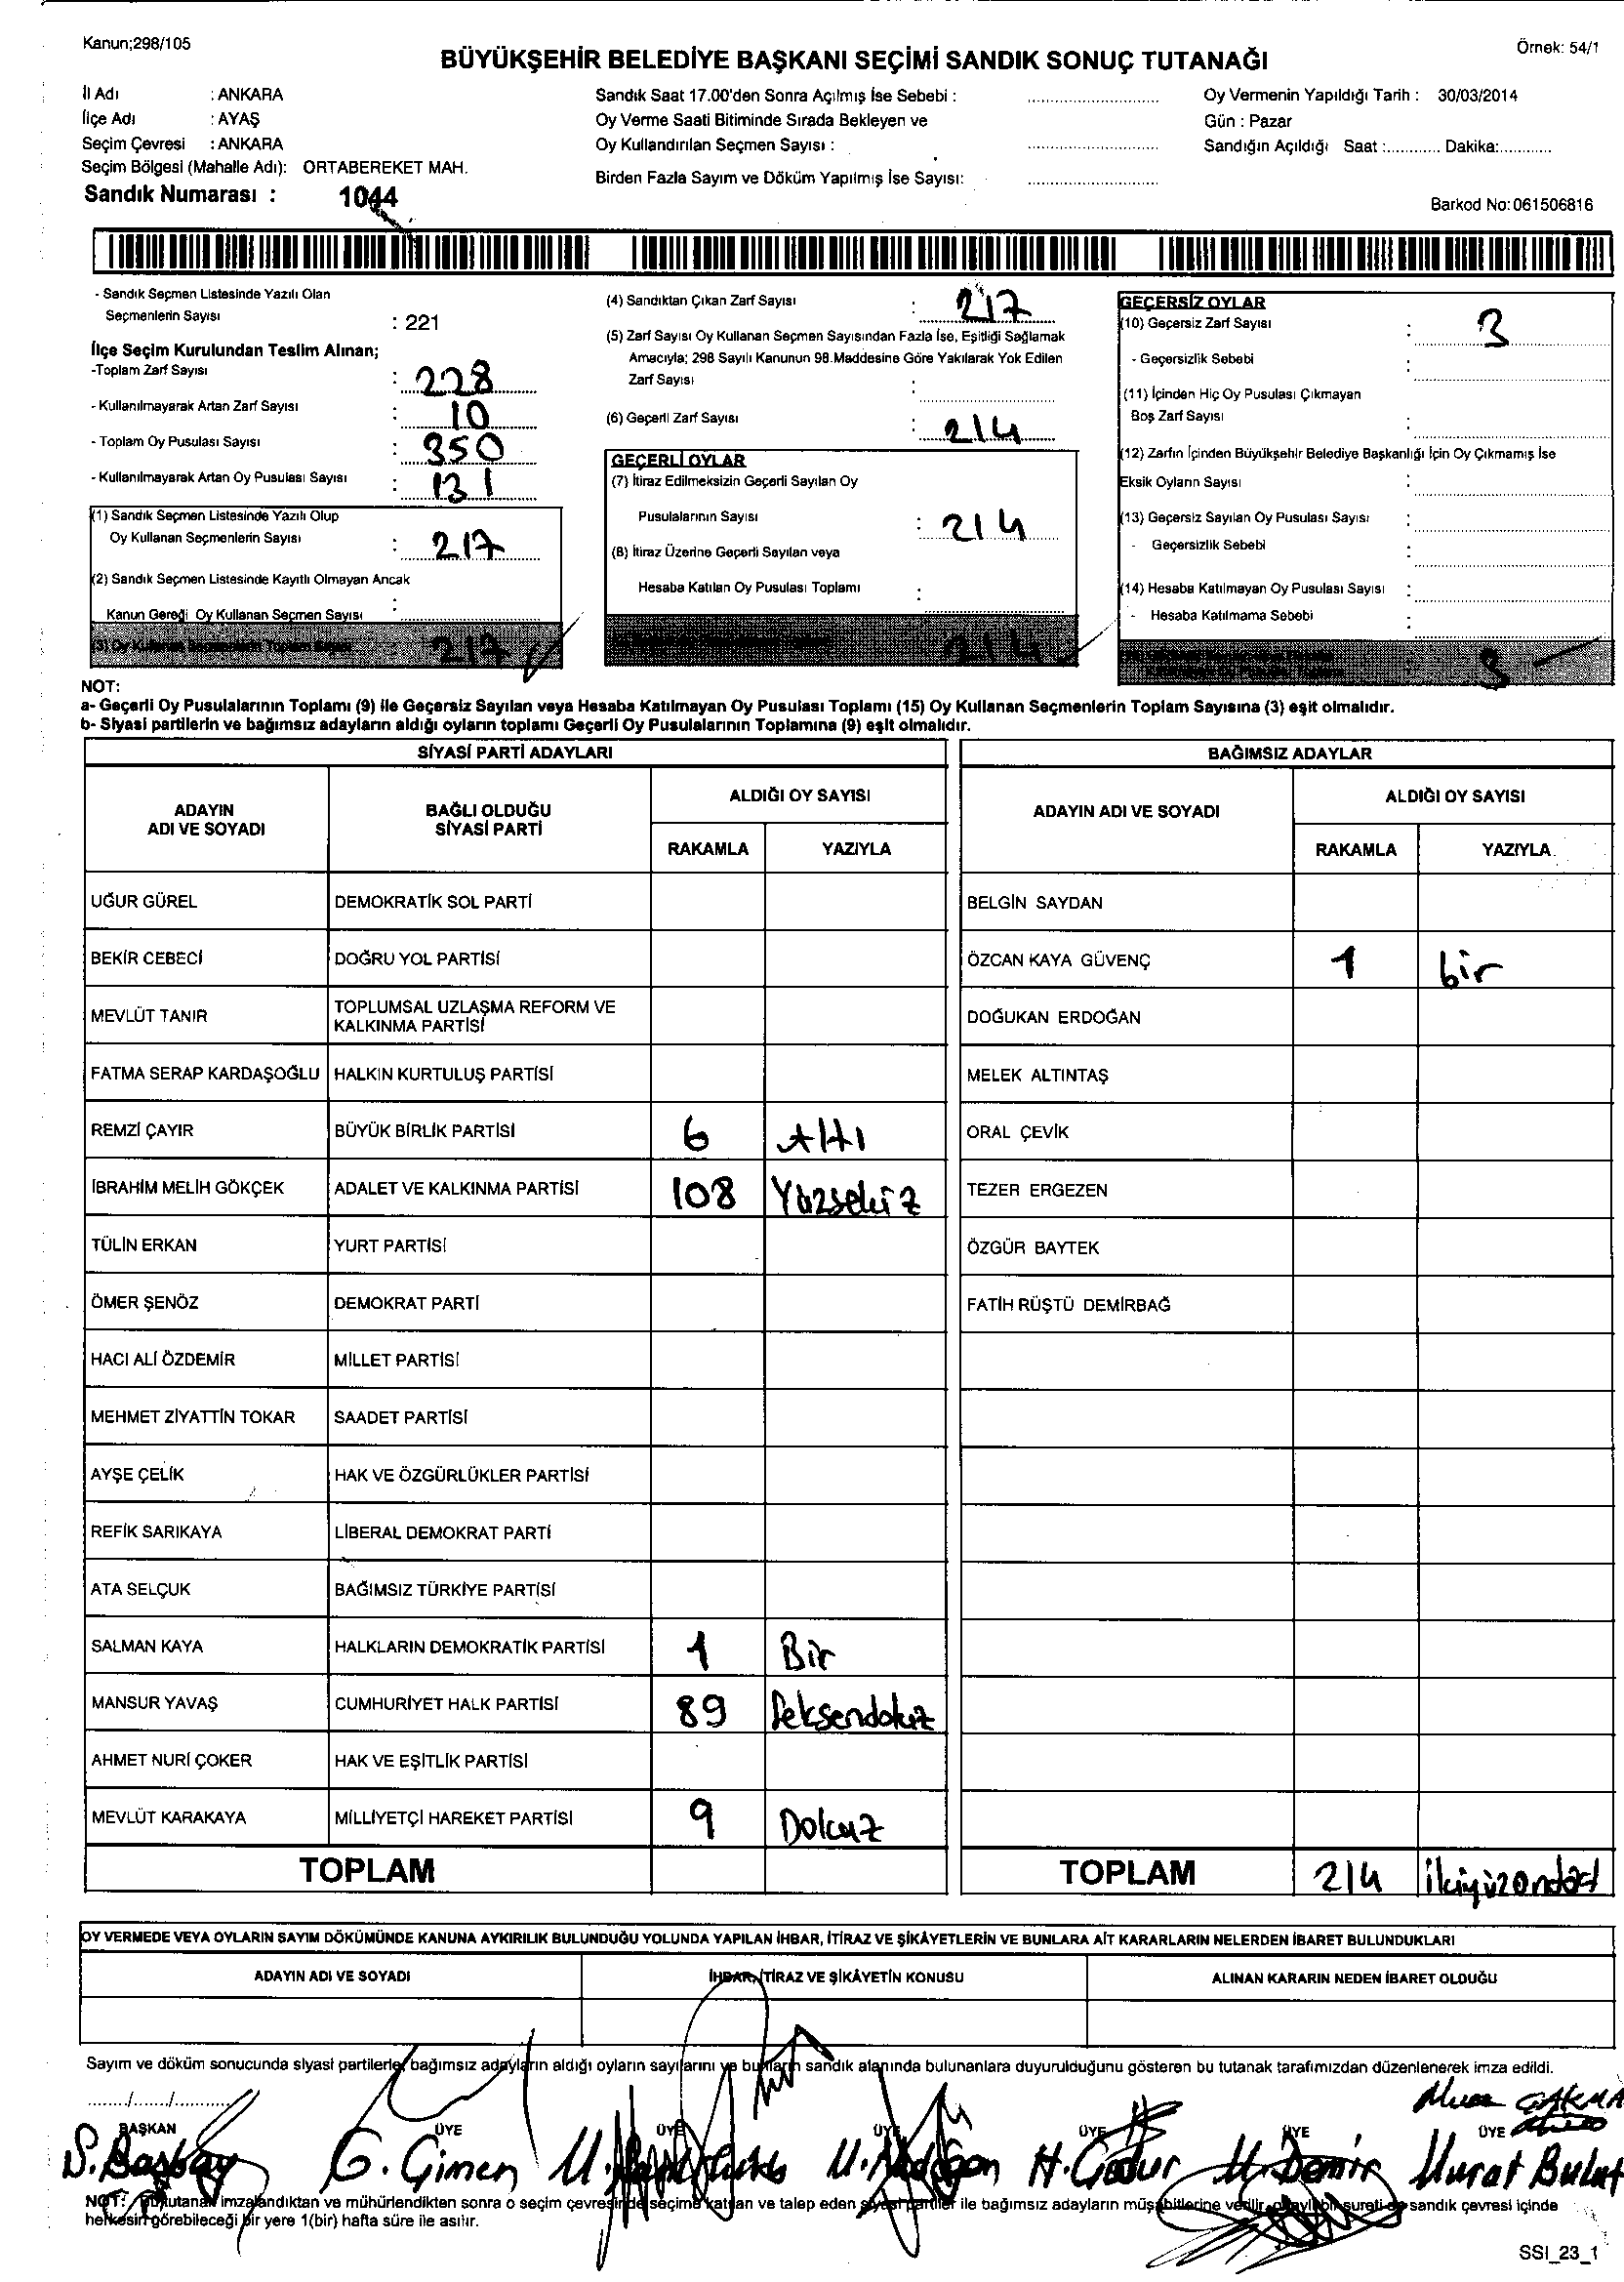 Kanun;298/105
Örnek: 54/1
BÜYÜKŞEHİR BELEDİYE BAŞKANI SEÇİMİ SANDIK SONUÇ TUTANAĞI
İl Adı : ANKARA
İlçe Adı : AYAŞ
Seçim Çevresi : ANKARA
Seçim Bölgesi (Mahalle Adı): ORTABEREKET MAH.
Sandık Numarası : 1044
Sandık Saat 17.00'den Sonra Açılmış İse Sebebi :
Oy Verme Saati Bitiminde Sırada Bekleyen ve
Oy Kullandırılan Seçmen Sayısı :
Birden Fazla Sayım ve Döküm Yapılmış İse Sayısı:
Oy Vermenin Yapıldığı Tarih : 30/03/2014
Gün : Pazar
Sandığın Açıldığı Saat :........... Dakika:...........
Barkod No:061506816
- Sandık Seçmen Listesinde Yazılı Olan
Seçmenlerin Sayısı : 221
İlçe Seçim Kurulundan Teslim Alınan;
-Toplam Zarf Sayısı : 228
- Kullanılmayarak Artan Zarf Sayısı : 10
- Toplam Oy Pusulası Sayısı : 350
- Kullanılmayarak Artan Oy Pusulası Sayısı : 131
(1) Sandık Seçmen Listesinde Yazılı Olup
Oy Kullanan Seçmenlerin Sayısı : 217
(2) Sandık Seçmen Listesinde Kayıtlı Olmayan Ancak
Kanun Gereği Oy Kullanan Seçmen Sayısı :
(3) Oy Kullanan Seçmenlerin Toplam Sayısı 217
(4) Sandıktan Çıkan Zarf Sayısı : 217
(5) Zarf Sayısı Oy Kullanan Seçmen Sayısından Fazla İse, Eşitliği Sağlamak
Amacıyla; 298 Sayılı Kanunun 98.Maddesine Göre Yakılarak Yok Edilen
Zarf Sayısı :
(6) Geçerli Zarf Sayısı : 214
GEÇERLİ OYLAR
(7) İtiraz Edilmeksizin Geçerli Sayılan Oy
Pusulalarının Sayısı : 214
(8) İtiraz Üzerine Geçerli Sayılan veya
Hesaba Katılan Oy Pusulası Toplamı :
214
GEÇERSİZ OYLAR
(10) Geçersiz Zarf Sayısı : 3
- Geçersizlik Sebebi :
(11) İçinden Hiç Oy Pusulası Çıkmayan
Boş Zarf Sayısı :
(12) Zarfın İçinden Büyükşehir Belediye Başkanlığı İçin Oy Çıkmamış İse
Eksik Oyların Sayısı :
(13) Geçersiz Sayılan Oy Pusulası Sayısı :
- Geçersizlik Sebebi :
(14) Hesaba Katılmayan Oy Pusulası Sayısı :
- Hesaba Katılmama Sebebi :
3
NOT:
a- Geçerli Oy Pusulalarının Toplamı (9) ile Geçersiz Sayılan veya Hesaba Katılmayan Oy Pusulası Toplamı (15) Oy Kullanan Seçmenlerin Toplam Sayısına (3) eşit olmalıdır.
b- Siyasi partilerin ve bağımsız adayların aldığı oyların toplamı Geçerli Oy Pusulalarının Toplamına (9) eşit olmalıdır.
SİYASİ PARTİ ADAYLARI
ADAYIN ADI VE SOYADI
BAĞLI OLDUĞU SİYASİ PARTİ
ALDIĞI OY SAYISI
RAKAMLA YAZIYLA
UĞUR GÜREL DEMOKRATİK SOL PARTİ
BEKİR CEBECİ DOĞRU YOL PARTİSİ
MEVLÜT TANIR TOPLUMSAL UZLAŞMA REFORM VE KALKINMA PARTİSİ
FATMA SERAP KARDAŞOĞLU HALKIN KURTULUŞ PARTİSİ
REMZİ ÇAYIR BÜYÜK BİRLİK PARTİSİ 6 Altı
İBRAHİM MELİH GÖKÇEK ADALET VE KALKINMA PARTİSİ 108 Yüzsekiz
TÜLİN ERKAN YURT PARTİSİ
ÖMER ŞENÖZ DEMOKRAT PARTİ
HACI ALİ ÖZDEMİR MİLLET PARTİSİ
MEHMET ZİYATTİN TOKAR SAADET PARTİSİ
AYŞE ÇELİK HAK VE ÖZGÜRLÜKLER PARTİSİ
REFİK SARIKAYA LİBERAL DEMOKRAT PARTİ
ATA SELÇUK BAĞIMSIZ TÜRKİYE PARTİSİ
SALMAN KAYA HALKLARIN DEMOKRATİK PARTİSİ 1 Bir
MANSUR YAVAŞ CUMHURİYET HALK PARTİSİ 89 Seksendokuz
AHMET NURİ ÇOKER HAK VE EŞİTLİK PARTİSİ
MEVLÜT KARAKAYA MİLLİYETÇİ HAREKET PARTİSİ 9 Dokuz
TOPLAM
BAĞIMSIZ ADAYLAR
ADAYIN ADI VE SOYADI
ALDIĞI OY SAYISI
RAKAMLA YAZIYLA
BELGİN SAYDAN
ÖZCAN KAYA GÜVENÇ 1 bir
DOĞUKAN ERDOĞAN
MELEK ALTINTAŞ
ORAL ÇEVİK
TEZER ERGEZEN
ÖZGÜR BAYTEK
FATİH RÜŞTÜ DEMİRBAĞ
TOPLAM 214 ikiyüzondört
OY VERMEDE VEYA OYLARIN SAYIM DÖKÜMÜNDE KANUNA AYKIRILIK BULUNDUĞU YOLUNDA YAPILAN İHBAR, İTİRAZ VE ŞİKÂYETLERİN VE BUNLARA AİT KARARLARIN NELERDEN İBARET BULUNDUKLARI
ADAYIN ADI VE SOYADI
İHBAR, İTİRAZ VE ŞİKÂYETİN KONUSU
ALINAN KARARIN NEDEN İBARET OLDUĞU
Sayım ve döküm sonucunda siyasi partilerle, bağımsız adayların aldığı oyların sayılarını ve bunların sandık alanında bulunanlara duyurulduğunu gösteren bu tutanak tarafımızdan düzenlenerek imza edildi.
......./......./...........
BAŞKAN ÜYE ÜYE ÜYE ÜYE ÜYE ÜYE
S. Başbay G. Çimen H. M. Demir Murat Bulut
NOT: Bu tutanak imzalandıktan ve mühürlendikten sonra o seçim çevresinde seçime katılan ve talep eden siyasi partiler ile bağımsız adayların müşahitlerine verilir, onaylı bir sureti de sandık çevresi içinde
herkesin görebileceği bir yere 1(bir) hafta süre ile asılır.
SSI_23_1